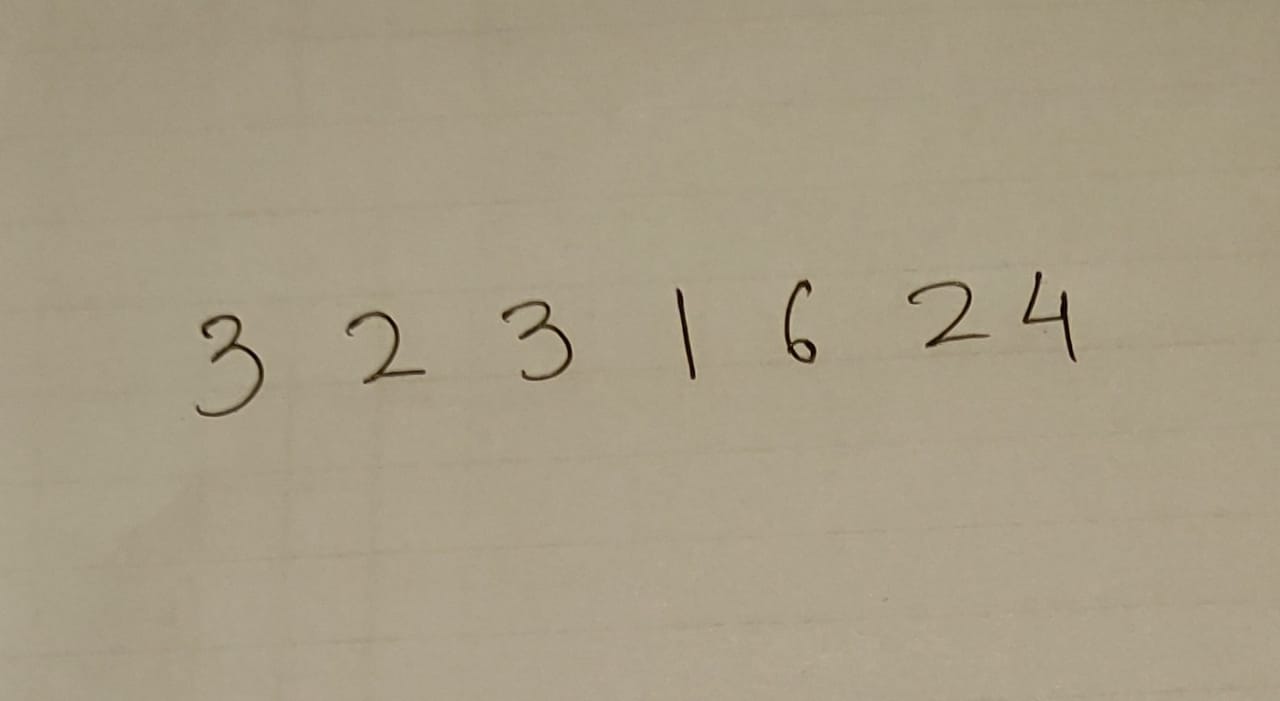 3 2 3 1 6 2 4